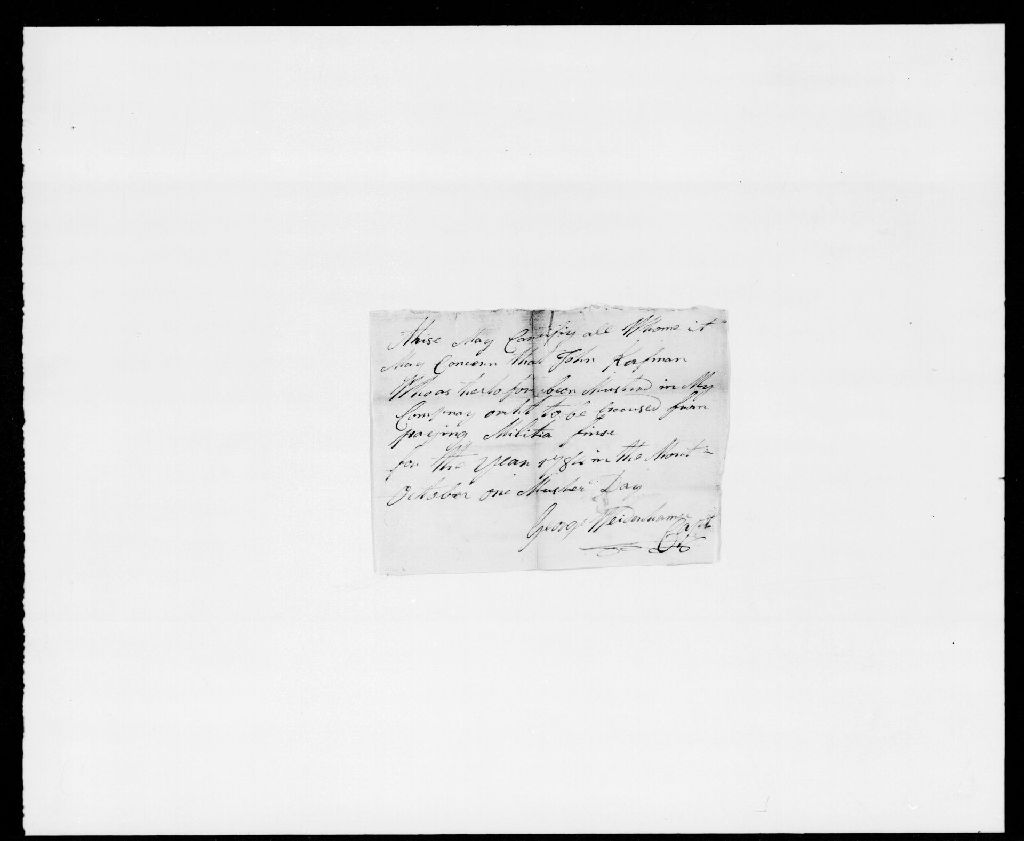 thise May Cartifiy all Whome it
May Concern that John Kafman
Whoas herto for been Mustrd in My
Compnay ouht to be Excused from
paying Militia finse
for the year in the Mont
October one Muster Day
George Weidenhamer Capt